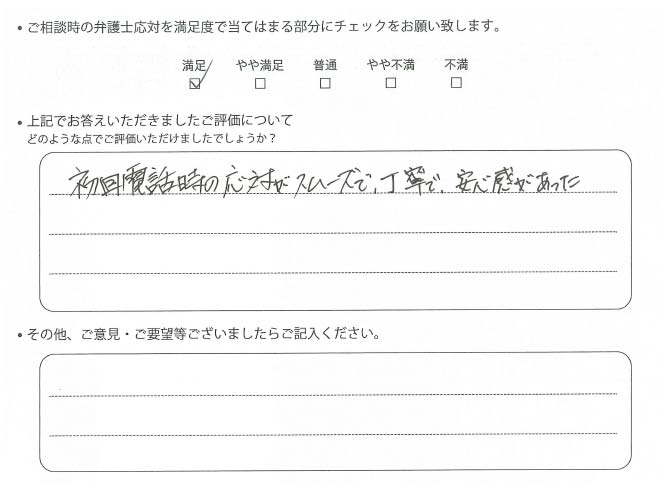 • ご相談時の弁護士応対を満足度で当てはまる部分にチェックをお願い致します。
満足 やや満足 普通 やや不満 不満
☑ □ □ □ □
• 上記でお答えいただきましたご評価について
どのような点でご評価いただけましたでしょうか？
初回電話時の応対がスムーズで、丁寧で、安心感があった
• その他、ご意見・ご要望等ございましたらご記入ください。